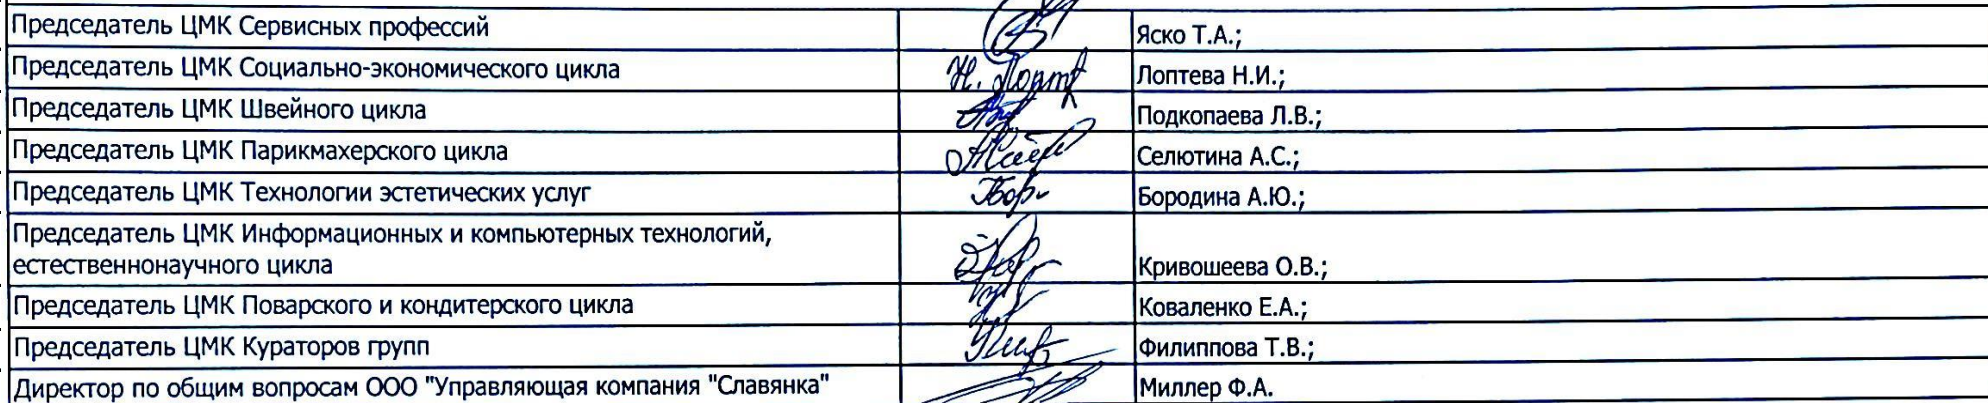 Председатель ЦМК Сервисных профессий Яско Т.А.;
Председатель ЦМК Социально-экономического цикла Лоптева Н.И.;
Председатель ЦМК Швейного цикла Подкопаева Л.В.;
Председатель ЦМК Парикмахерского цикла Селютина А.С.;
Председатель ЦМК Технологии эстетических услуг Бородина А.Ю.;
Председатель ЦМК Информационных и компьютерных технологий,
естественнонаучного цикла Кривошеева О.В.;
Председатель ЦМК Поварского и кондитерского цикла Коваленко Е.А.;
Председатель ЦМК Кураторов групп Филиппова Т.В.;
Директор по общим вопросам ООО "Управляющая компания "Славянка" Миллер Ф.А.